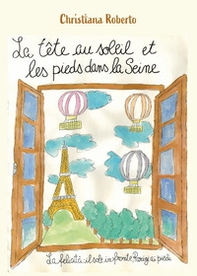 Christiana Roberto
La tête au soleil et
les pieds dans la Seine
La felicità: il sole in fronte